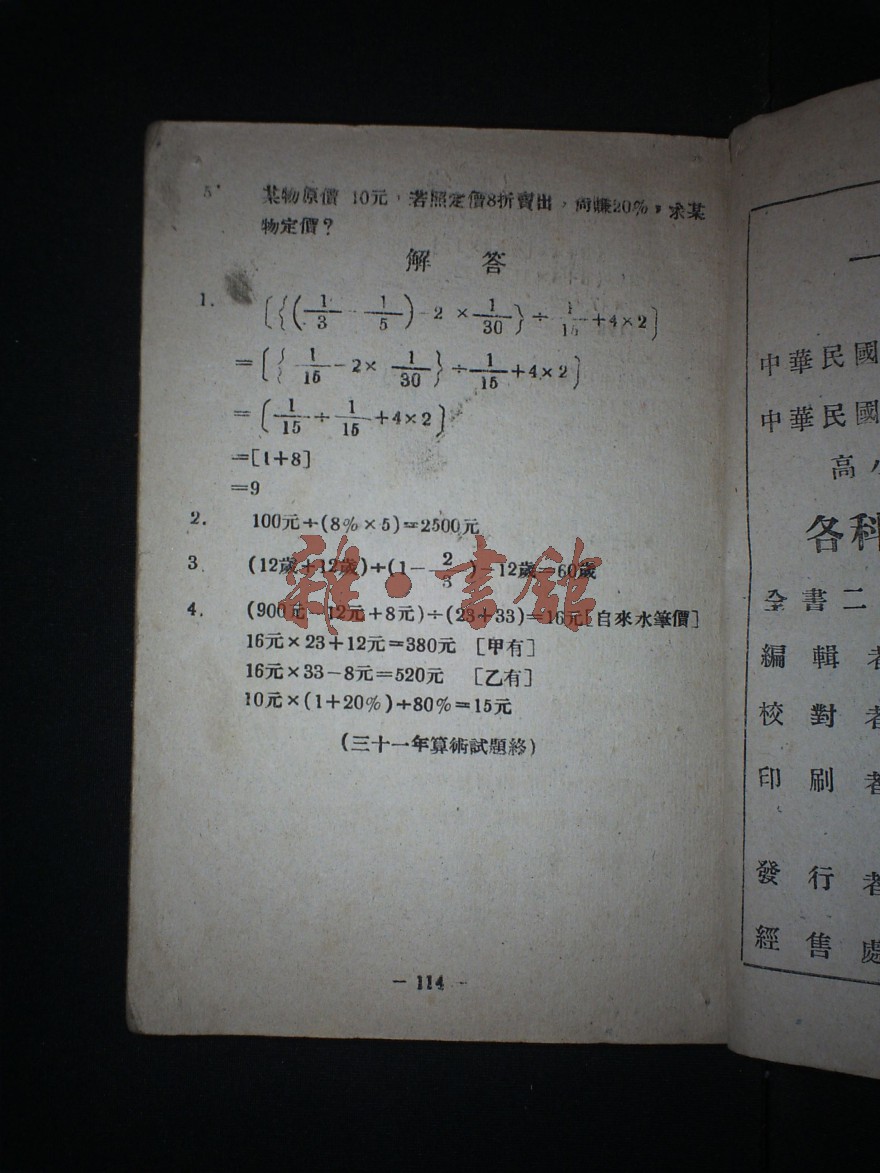 5. 某物原價 10元，若照定價8折賣出，尚賺20%，求某
物定價？
解 答
1. [{(1/3 - 1/5) - 2 × 1/30} ÷ 1/15 + 4×2]
= [{1/15 - 2× 1/30} ÷ 1/15 + 4×2]
= [1/15 ÷ 1/15 + 4×2]
=[1+8]
=9
2. 100元÷(8%×5)=2500元
3. (12歲+12歲)÷(1-2/3)-12歲=60歲
4. (900元-12元+8元)÷(23+33)=16元[自來水筆價]
16元×23+12元=380元 [甲有]
16元×33-8元=520元 [乙有]
10元×(1+20%)÷80%=15元
(三十一年算術試題終)
- 114 -
雜·書館
一
中華民國
中華民國
高小
各科
全書二
編輯者
校對者
印刷者
發行者
經售處